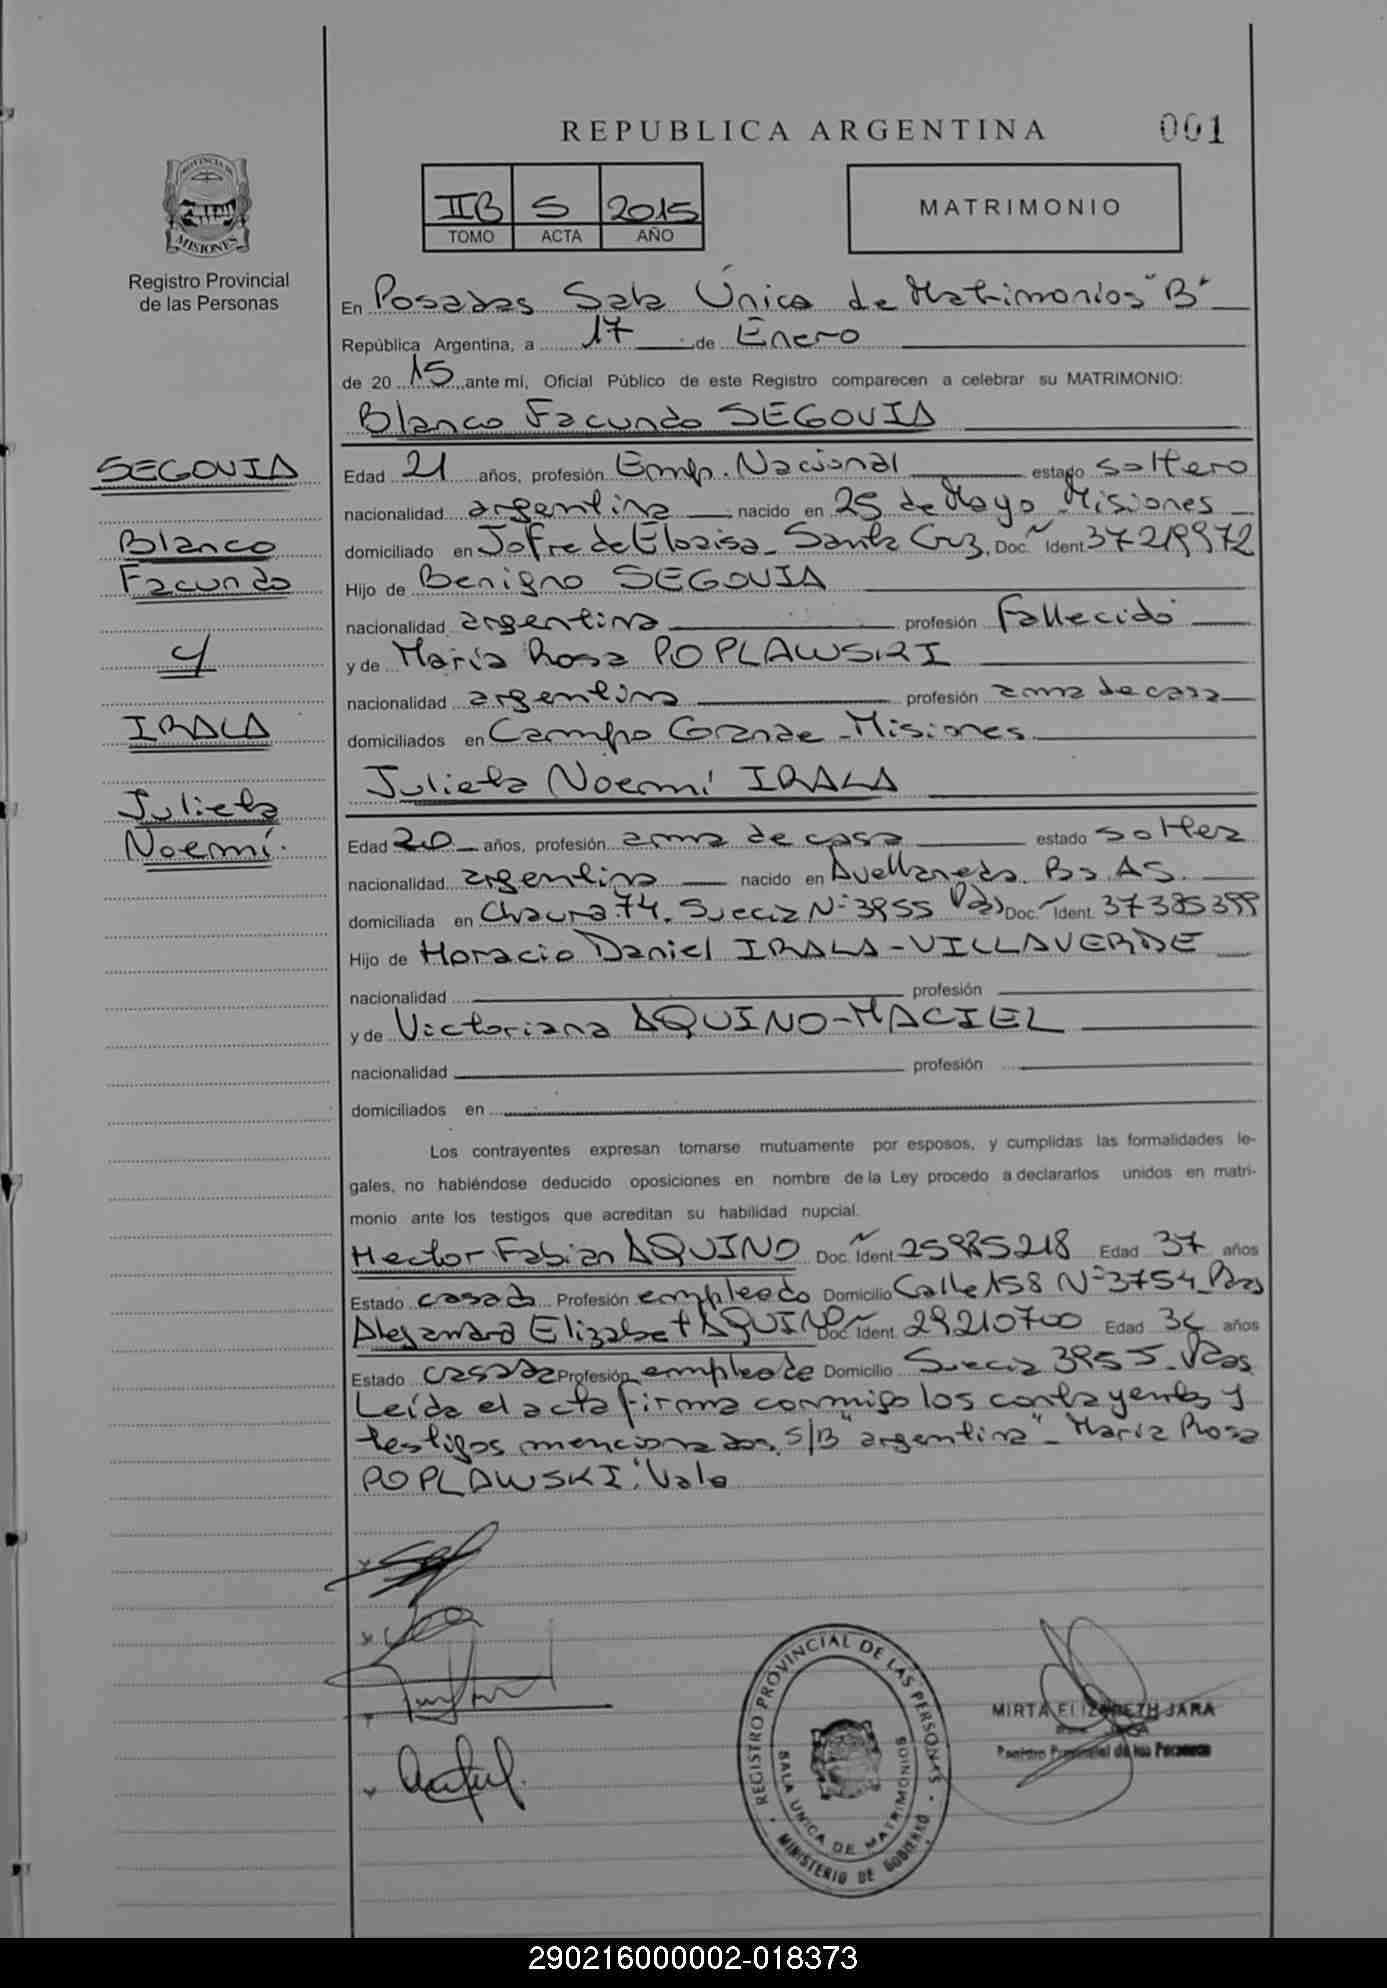 REPUBLICA ARGENTINA
001
PROVINCIA DE
MISIONES
Registro Provincial
de las Personas
IIB 5 2015
TOMO ACTA AÑO
MATRIMONIO
En Posadas Sala Única de Matrimonios "B"
República Argentina, a 17 de Enero
de 2015 ante mi, Oficial Público de este Registro comparecen a celebrar su MATRIMONIO:
Blanco Facundo SEGOVIA
SEGOVIA
Blanco
Facundo
y
IRALA
Julieta
Noemí.
Edad 21 años, profesión Emp. Nacional estado soltero
nacionalidad argentina nacido en 25 de Mayo Misiones
domiciliado en Jofre de Eloaisa - Santa Cruz, Doc. Ident. 37219972
Hijo de Benigno SEGOVIA
nacionalidad argentina profesión Fallecido
y de María Rosa POPLAWSKI
nacionalidad argentina profesión ama de casa
domiciliados en Campo Grande - Misiones
Julieta Noemí IRALA
Edad 20 años, profesión ama de casa estado soltera
nacionalidad argentina nacido en Avellaneda. Bs. AS.
domiciliada en Chacra 74. Suecia Nº 3955 Pdas Doc. Ident. 37385399
Hijo de Horacio Daniel IRALA-VILLAVERDE
nacionalidad profesión
y de Victoriana AQUINO-MACIEL
nacionalidad profesión
domiciliados en
Los contrayentes expresan tomarse mutuamente por esposos, y cumplidas las formalidades le-
gales, no habiéndose deducido oposiciones en nombre de la Ley procedo a declararlos unidos en matri-
monio ante los testigos que acreditan su habilidad nupcial.
Hector Fabian AQUINO Doc. Ident. 25985218 Edad 37 años
Estado casado Profesión empleado Domicilio Calle 158 Nº 3754 Pdas
Alejandra Elizabet AQUINO Doc. Ident. 29210700 Edad años
Estado casada Profesión empleada Domicilio Suecia 3955 - Pdas
Leída el acta firma conmigo los contrayentes y
testigos mencionados, S/B "argentina" - María Rosa
POPLAWSKI: Vale
REGISTRO PROVINCIAL DE LAS PERSONAS
SALA UNICA DE MATRIMONIOS
MINISTERIO DE GOBIERNO
MIRTA ELIZABETH JARA
Registro Provincial de las Personas
290216000002-018373